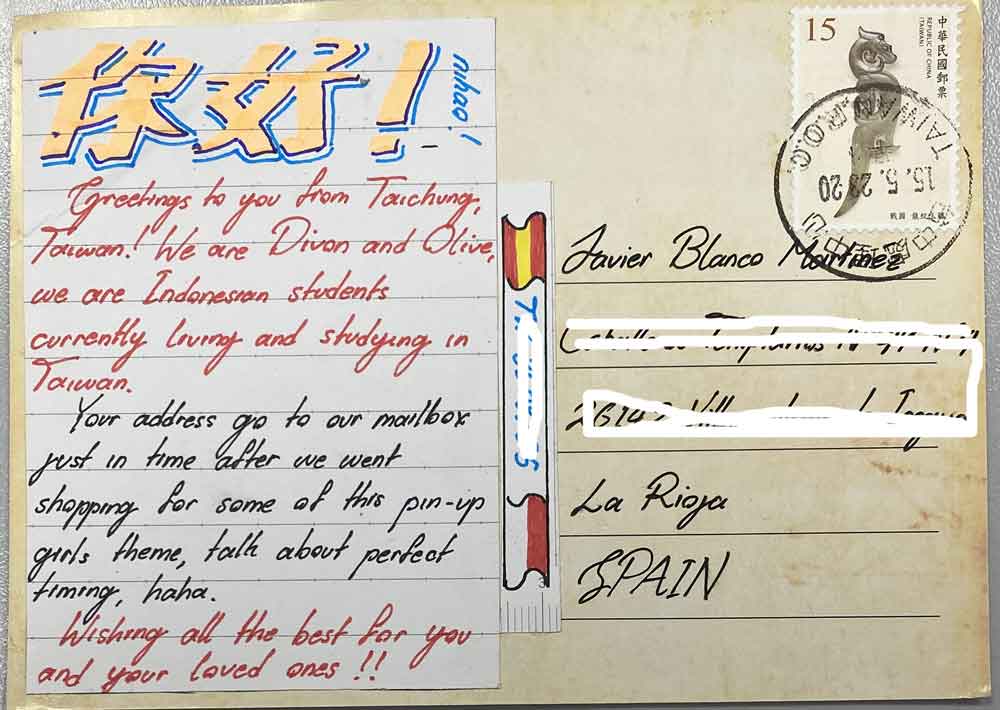 你好!
nihao!
Greetings to you from Taichung,
Taiwan! We are Divon and Olive,
we are Indonesian students
currently living and studying in
Taiwan.
Your address go to our mailbox
just in time after we went
shopping for some of this pin-up
girls theme, talk about perfect
timing, haha.
Wishing all the best for you
and your loved ones !!
15
中華民國郵票
REPUBLIC OF CHINA
(TAIWAN)
戰國
TAIWAN R.O.C.
15.5.23 20
Javier Blanco Martinez
La Rioja
SPAIN